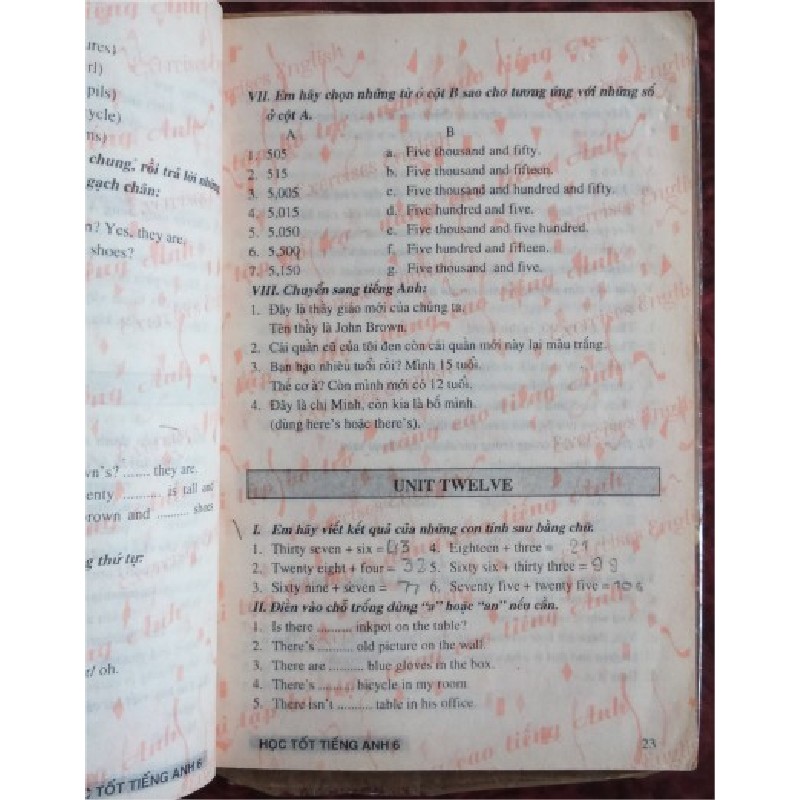 ures)
rl)
pils)
ycle)
ns)
chung, rồi trả lời những
gạch chân:
n? Yes, they are.
shoes?
wn's? ........ they are.
enty .......... is tall and
brown and .......... shoes
g thứ tự:
t/ oh.
HỌC TỐT TIẾNG ANH 6
VII. Em hãy chọn những từ ở cột B sao cho tương ứng với những số
ở cột A.
A B
1. 505 a. Five thousand and fifty.
2. 515 b. Five thousand and fifteen.
3. 5,005 c. Five thousand and hundred and fifty.
4. 5,015 d. Five hundred and five.
5. 5,050 e. Five thousand and five hundred.
6. 5,500 f. Five hundred and fifteen.
7. 5,150 g. Five thousand and five.
VIII. Chuyển sang tiếng Anh:
1. Đây là thầy giáo mới của chúng ta.
Tên thầy là John Brown.
2. Cái quần cũ của tôi đen còn cái quần mới này lại màu trắng.
3. Bạn bao nhiêu tuổi rồi? Mình 15 tuổi.
Thế cơ à? Còn mình mới có 12 tuổi.
4. Đây là chị Minh, còn kia là bố mình.
(dùng here's hoặc there's).
UNIT TWELVE
I. Em hãy viết kết quả của những con tính sau bằng chữ.
1. Thirty seven + six = 43 4. Eighteen + three = 21
2. Twenty eight + four = 32 5. Sixty six + thirty three = 99
3. Sixty nine + seven = 77 6. Seventy five + twenty five =
II. Điền vào chỗ trống dùng "a" hoặc "an" nếu cần.
1. Is there .......... inkpot on the table?
2. There's .......... old picture on the wall.
3. There are .......... blue gloves in the box.
4. There's .......... bicycle in my room.
5. There isn't .......... table in his office.
HỌC TỐT TIẾNG ANH 6 23